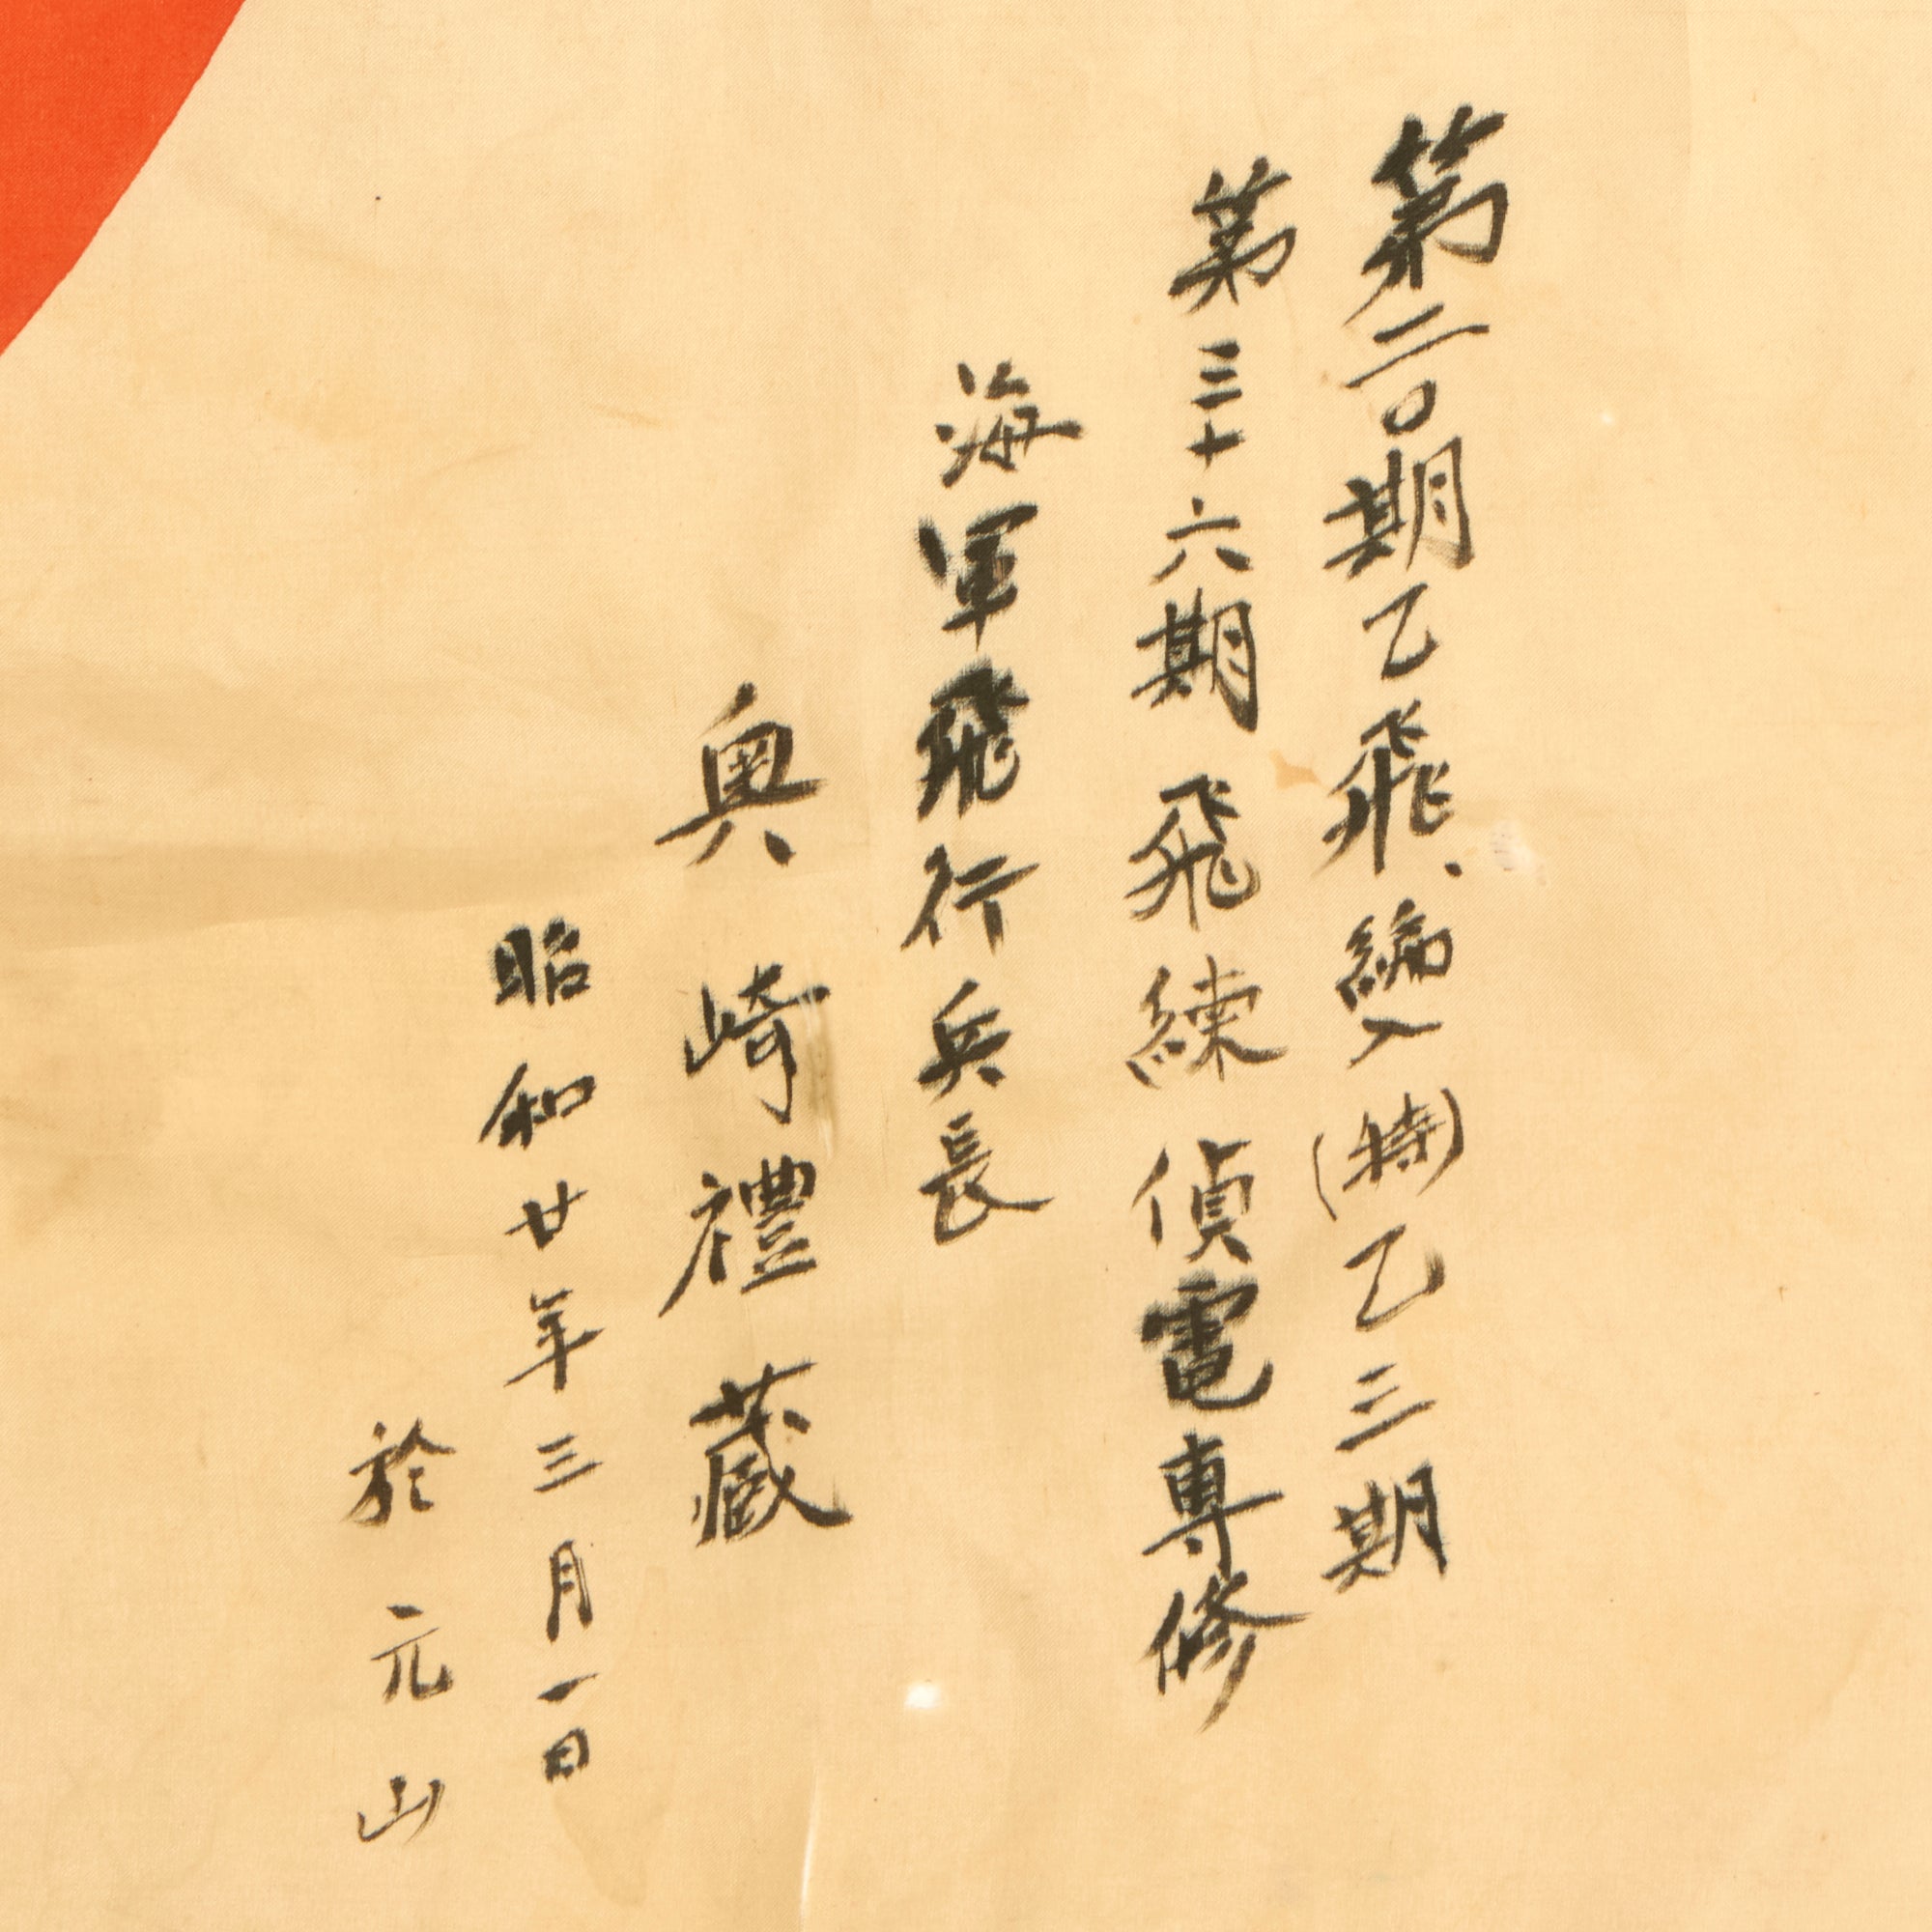 第二〇期乙飛、編入(特)乙三期
第三十六期飛練偵電專修
海軍飛行兵長
奥崎禮藏
昭和廿年三月一日
於元山